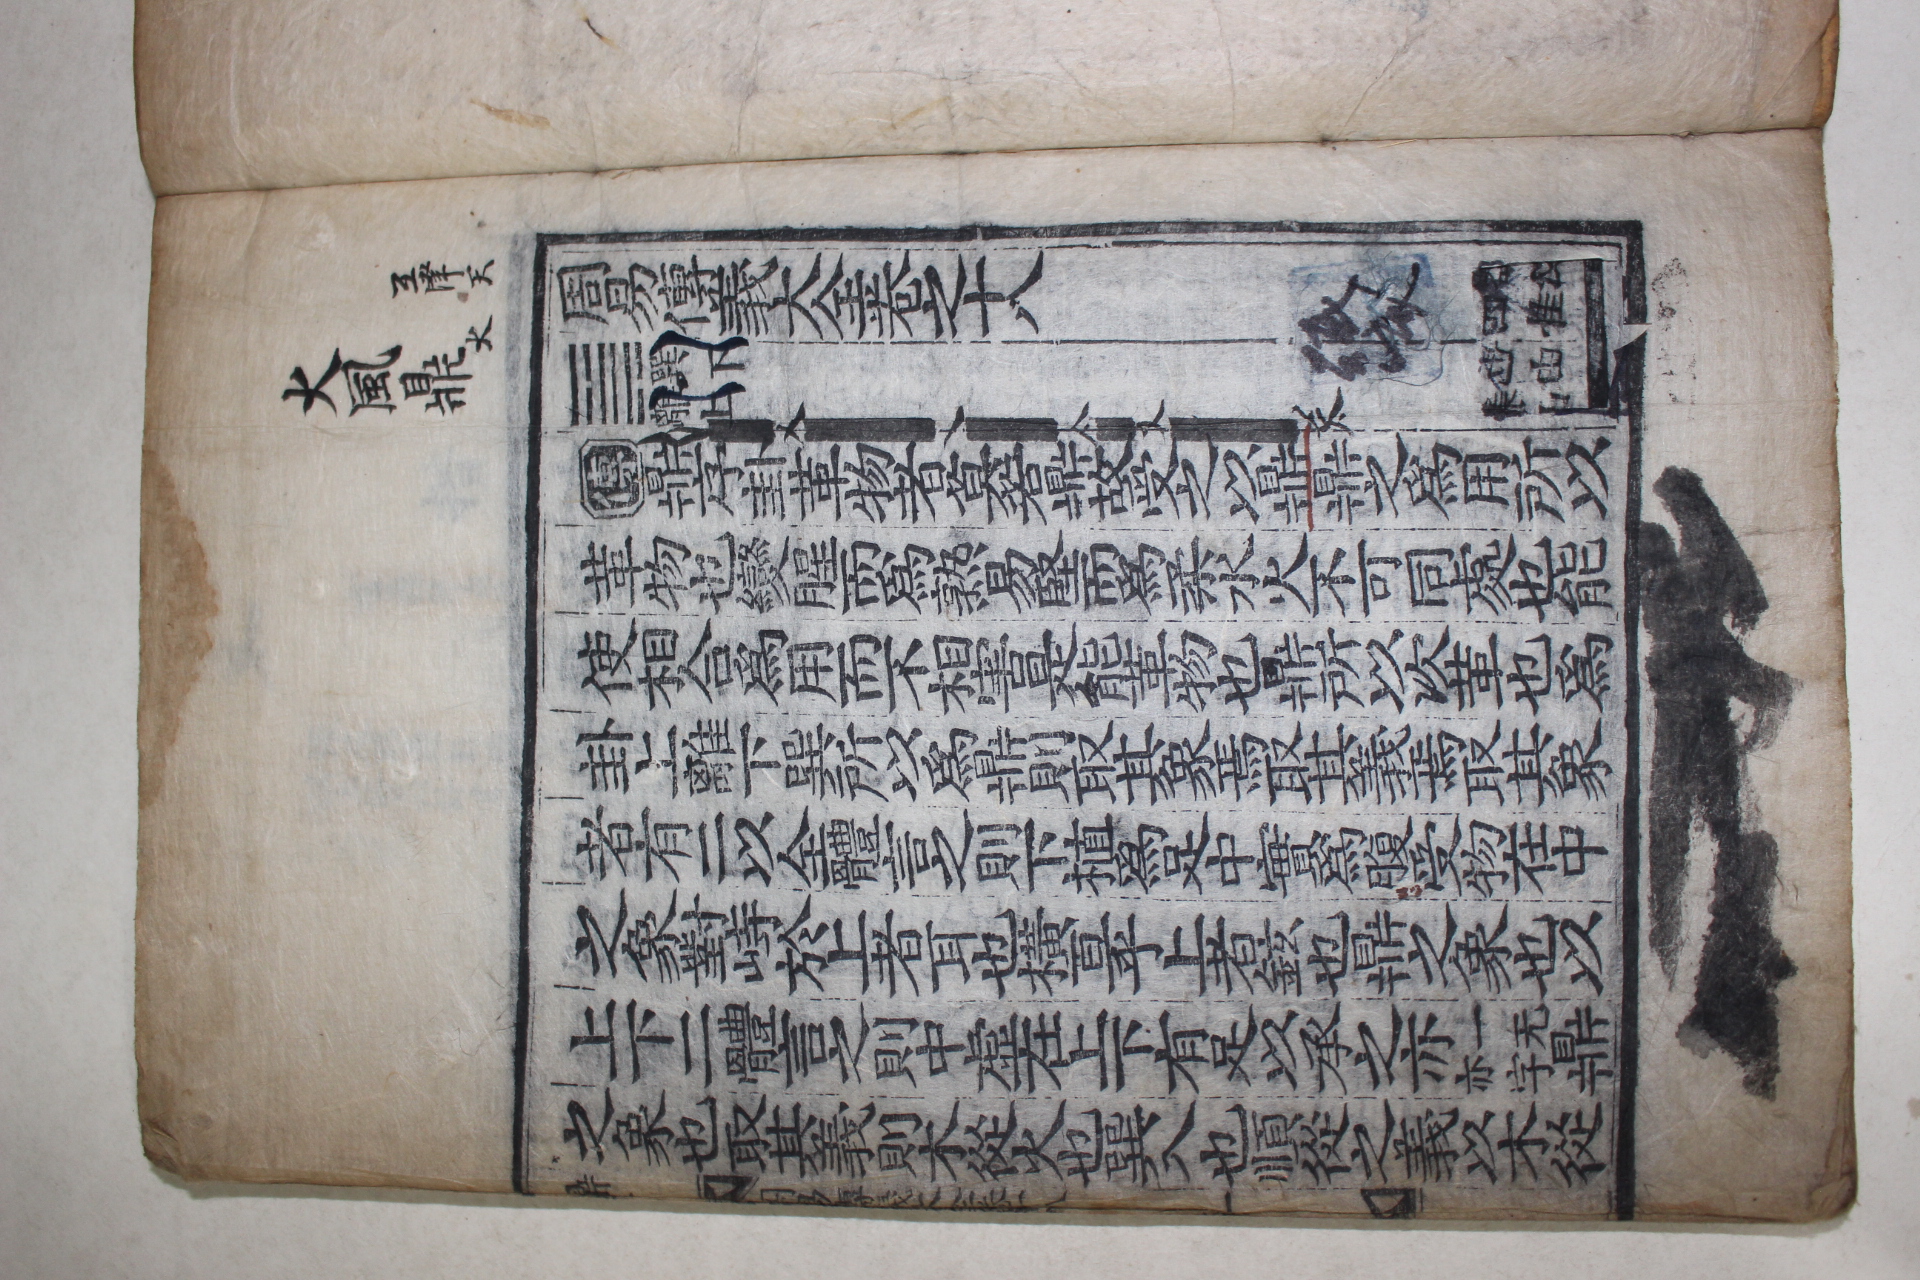 周易傳義大全卷之十八
巽下
離上
傳鼎序卦革物者莫若鼎故受之以鼎鼎之爲用所以
革物也變腥而爲熟易堅而爲柔水火不可同處也能
使相合爲用而不相害是能革物也鼎所以次革也爲
卦上離下巽所以爲鼎則取其象焉取其義焉取其象
者有二以全體言之則下植爲足中實爲腹受物在中
之象對峙於上者耳也橫亘乎上者鉉也鼎之象也以
上下二體言之則中虛在上下有足以承之亦一无亦字鼎
之象也取其義則木從火也巽入也順從之義以木從
火風鼎
互澤天
火